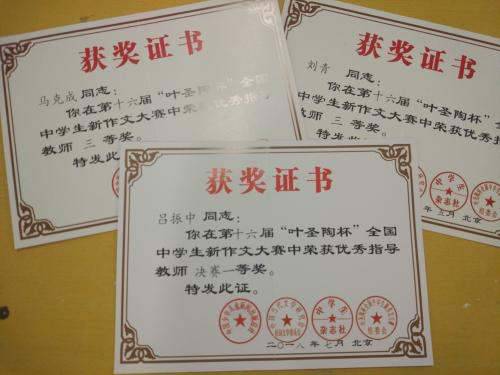 获奖证书
马克成 同志：
你在第十六届“叶圣陶杯”全国
中学生新作文大赛中荣获优秀指导
教师 三 等奖。
特发此证
获奖证书
刘青 同志：
你在第十六届“叶圣陶杯”全
中学生新作文大赛中荣获优秀
教师 三 等奖。
特发此
中学生
杂志社
组委会
年 七月 北京
获奖证书
吕振中 同志：
你在第十六届“叶圣陶杯”全国
中学生新作文大赛中荣获优秀指导
教师 决赛一等奖。
特发此证。
中学生
杂志社
组委会
二〇一八年 七月 北京